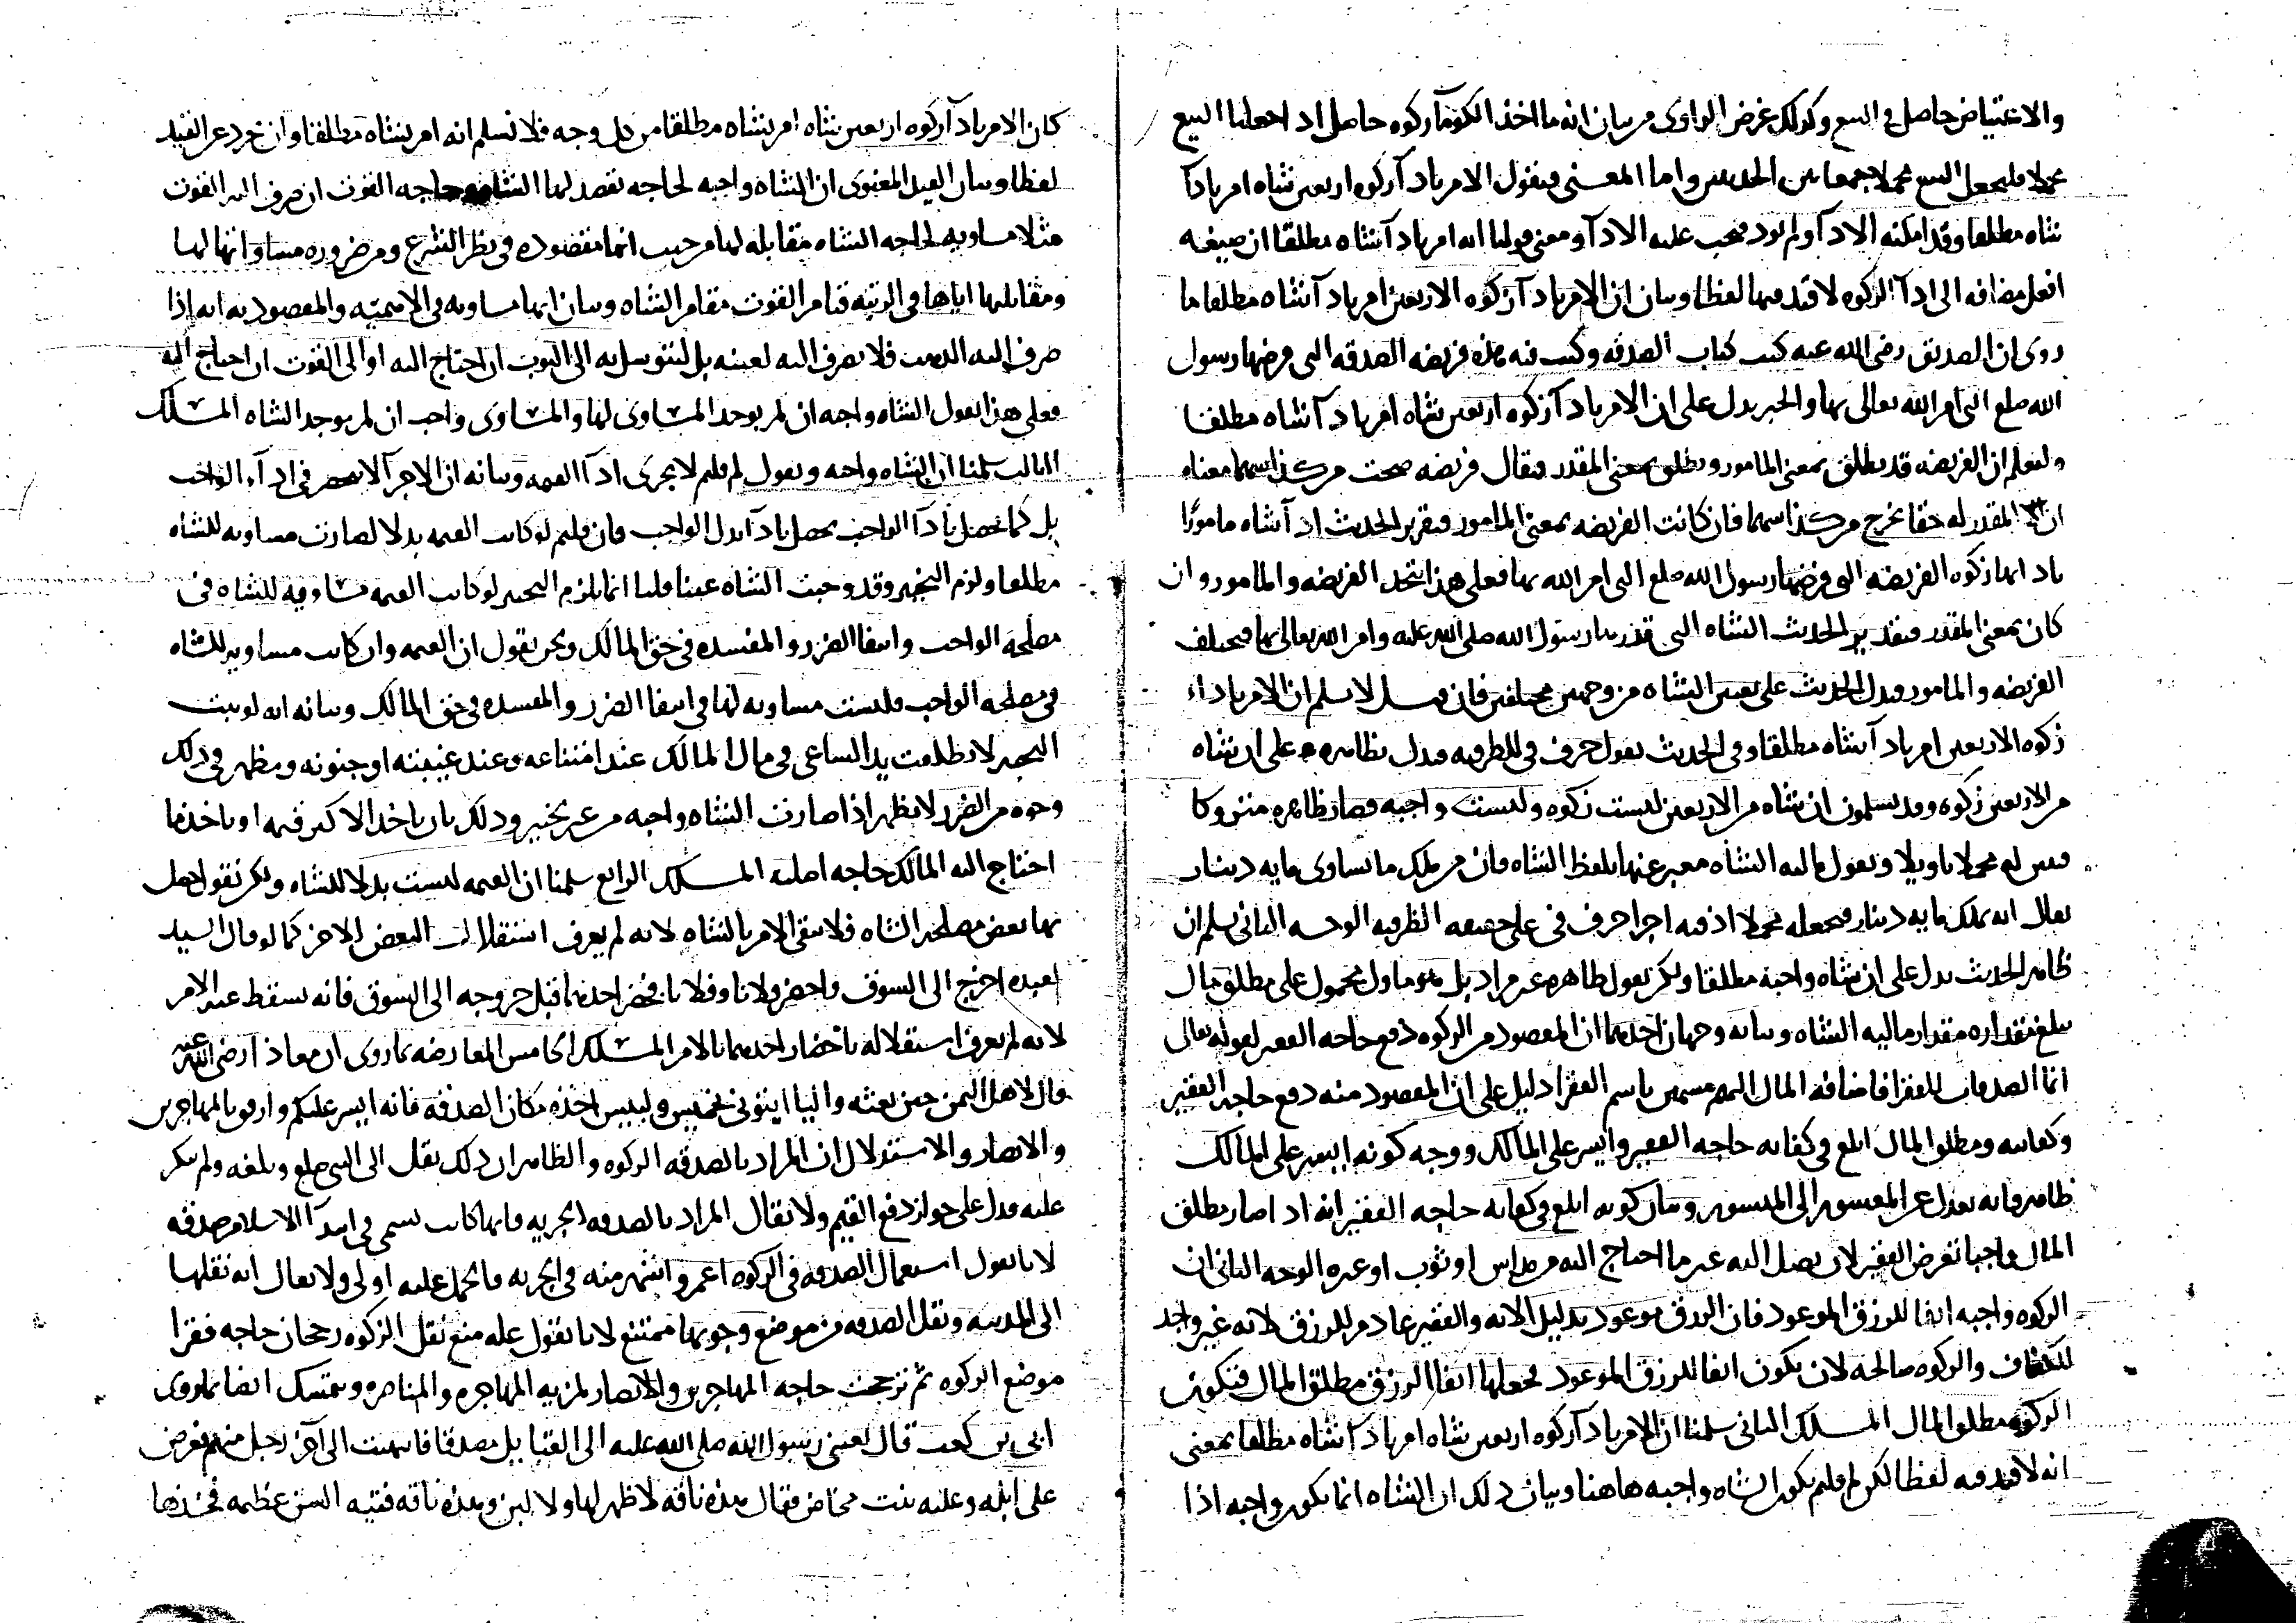 والاعتياض حاصل في البيع وكذلك غرض الراوي من بيان انه ما اخذ الكوما زكوه حاصل اذا جعلنا البيع
محملا فليجعل البيع محملا جمعا بين الحديثين واما المعنى فيقول الامر باداء زكوه اربعين شاه امر باداء
شاه مطلقا وقد امكنه الاداء ولم يود فيجب عليه الاداء ومعنى قولنا انه امر باداء شاه مطلقا ان صيغه
افعل مضافه الى اداء الزكوه لا قيد فيها لفظا وبيان ان الامر باداء زكوه الاربعين امر باداء شاه مطلقا ما
روى ان الصديق رضى الله عنه كتب كتاب الصدقه وكتب فيه هذه فريضه الصدقه التي فرضها رسول
الله صلع التي امر الله تعالى بها والخبر يدل على ان الامر باداء زكوه اربعين شاه امر باداء شاه مطلقا
وليعلم ان الفريضه قد يطلق بمعنى المامور ويطلق بمعنى المقدر فيقال فريضه صحت من كذا سهما معناه
ان المقدر له حقا يخرج من كذا سهما فان كانت الفريضه بمعنى المامور فتقرير الحديث اداء شاه مامورا
بادايها زكوه الفريضه التي فرضها رسول الله صلع التي امر الله بها فعلى هذا يتحد الفريضه والمامور وان
كان بمعنى المقدر فتقدير الحديث الشاه التي قدرها رسول الله صلى الله عليه وامر الله تعالى بها فيختلف
الفريضه والمامور فيدل الحديث على تعيين الشاه من وجهين مختلفين فان قيل لا نسلم ان الامر باداء
زكوه الاربعين امر باداء شاه مطلقا وفي الحديث يقول حرف في للظرفيه فيدل بظاهره على ان شاه
من الاربعين زكوه وقد يسلمون ان شاه من الاربعين ليست زكوه وليست واجبه فصار ظاهره متروكا
فبين له محملا تاويلا ويقول ماليه الشاه معبر عنها بلفظ الشاه فان من ملك ما يساوى مايه دينار
يقال انه يملك مايه دينار فيجعله محملا اذ فيه اجرا حرف في على حقيقه الظرفيه الوجه الثاني نسلم ان
ظاهر الحديث يدل على ان شاه واجبه مطلقا ولكن يقول ظاهره غير مراد بل هو ماول محمول على مطلق مال
يبلغ مقداره مقدار ماليه الشاه وبيانه وجهان احدهما ان المقصود من الزكوه دفع حاجه الفقير لقوله تعالى
انما الصدقات للفقرا فاضافه المال اليهم مسمين باسم الفقرا دليل على ان المقصود منه دفع حاجه الفقير
وكفايته ومطلق المال ابلغ في كفايه حاجه الفقير وايسر على المالك ووجه كونه ايسر على المالك
ظاهر فانه يعدل عن المعسور الى الميسور وبيان كونه ابلغ في كفايه حاجه الفقير انه اذا صار مطلق
المال واجبا تعرض الفقير لان يصل اليه عين ما احتاج اليه من مداس او ثوب او غيره الوجه الثاني ان
الزكوه واجبه ايفا للرزق الموعود فان الرزق موعود بدليل الايه والفقير عادم للرزق لانه غير واجد
للكفاف والزكوه صالحه لان يكون ايفا للرزق الموعود فجعلها ايفا الرزق مطلق المال فتكون
الزكوه مطلق المال المسلك الثاني سلمنا ان الامر باداء زكوه اربعين شاه امر باداء شاه مطلقا بمعنى
انه لا قيد فيه لفظا لكن لم قلتم يكون الشاه واجبه هاهنا وبيان ذلك ان الشاه انما يكون واجبه اذا
كان الامر باداء زكوه اربعين شاه امر بشاه مطلقا من كل وجه فلا نسلم انه امر بشاه مطلقا وان تجرد عن القيد
لفظا وبيان القيد المعنوى ان الشاه واجبه لحاجه تقصد لها الشاه وحاجه القوت ان صرف اليه القوت
مثلا مساويه لحاجه الشاه مقابله لها من حيث انها مقصوده في نظر الشرع ومن ضروره مساواتها لها
ومقابلتها اياها في الرتبه قيام القوت مقام الشاه وبيان انها مساويه في الاهميه والمقصوديه انه اذا
صرف اليه الذهب فلا يصرف اليه لعينه بل ليتوسل به الى الثوب ان احتاج اليه او الى القوت ان احتاج اليه
فعلى هذا يقول الشاه واجبه ان لم يوجد المساوى لها والمساوى واجب ان لم يوجد الشاه المسلك
الثالث سلمنا ان الشاه واجبه ونقول لم قلتم لا يجزى اداء القيمه وبيانه ان الاجزاء لا ينحصر في اداء الواجب
بل كما يحصل باداء الواجب يحصل باداء بدل الواجب فان قلتم لو كانت القيمه بدلا لصارت مساويه للشاه
مطلقا ولزم التخيير وقد وجبت الشاه عينا قلنا انما يلزم التخيير لو كانت القيمه مساويه للشاه في
مصلحه الواجب وانتفا الضرر والمفسده في حق المالك ونحن نقول ان القيمه وان كانت مساويه للشاه
في مصلحه الواجب فليست مساويه لها في انتفا الضرر والمفسده في حق المالك وبيانه انه لو ثبت
التخيير لانطلقت يد الساعي في مال المالك عند امتناعه وعند غيبته او جنونه ويظهر في ذلك
وجوه من الضرر لا يظهر اذا صارت الشاه واجبه من غير تخيير وذلك بان ياخذ الاكثر قيمه او ياخذ ما
احتاج اليه المالك حاجه اصليه المسلك الرابع سلمنا ان القيمه ليست بدلا للشاه ولكن نقول حصل
بها بعض مصلحه الشاه فلا يبقى الامر بالشاه لانه لم يعرف استقلال البعض الاخر كما لو قال السيد
لعبده اخرج الى السوق واحضر فلانا وفلانا فحضر احدهما قبل خروجه الى السوق فانه يسقط عنه الامر
لانه لم يعرف استقلاله باحضار احدهما بالامر المسلك الخامس المعارضه بما روى ان معاذا رضى الله عنه
قال لاهل اليمن حين بعثه واليا ايتوني بخميس ولبيس اخذه مكان الصدقه فانه ايسر عليكم وارفق بالمهاجرين
والانصار والاستدلال ان المراد بالصدقه الزكوه والظاهر ان ذلك نقل الى النبي صلع وبلغه ولم ينكر
عليه فدل على جواز دفع القيم ولا يقال المراد بالصدقه الجزيه فانها كانت تسمى في ابتداء الاسلام صدقه
لانا نقول استعمال الصدقه في الزكوه اعم واشهر منه في الجزيه فالحمل عليه اولى ولا يقال انه نقلها
الى المدينه ونقل الصدقه من موضع وجوبها ممتنع لانا نقول عله منع نقل الزكوه رجحان حاجه فقرا
موضع الزكوه ثم ترجحت حاجه المهاجرين والانصار لمزيه المهاجره والمناصره ويتمسك ايضا بما روى
ابي بن كعب قال بعثني رسول الله صلى الله عليه الى القبايل مصدقا فانتهيت الى اخر رجل منهم يعرض
على ابله وعليه بنت مخاض فقال هذه ناقه لا ظهر لها ولا لبن وهذه ناقه فتيه السن عظيمه فخذها